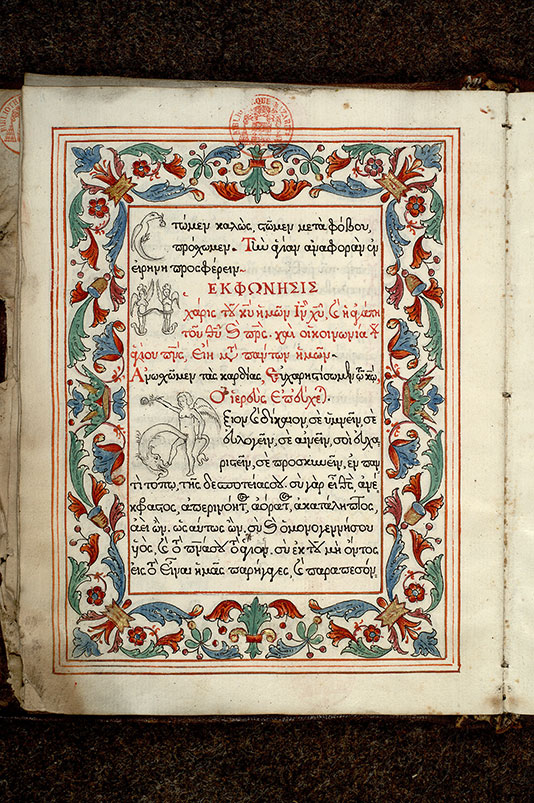 Στῶμεν καλῶς, στῶμεν μετὰ φόβου,
πρόσχωμεν. Τὴν ἁγίαν ἀναφορὰν ἐν
εἰρήνῃ προσφέρειν.
ΕΚΦΩΝΗΣΙΣ
Ἡ χάρις τοῦ κυ ἡμῶν Ιυ Χυ, καὶ ἡ ἀγάπη
τοῦ θυ καὶ πρς. καὶ ἡ κοινωνία τοῦ
ἁγίου πνς, εἴη μετὰ πάντων ἡμῶν.
Ἄνω σχῶμεν τὰς καρδίας, Εὐχαριστήσωμεν τῷ κω,
Ὁ ἱερεὺς ἐπεύχεται.
Ἄξιον καὶ δίκαιον, σὲ ὑμνεῖν, σὲ
εὐλογεῖν, σὲ αἰνεῖν, σοὶ εὐχα
ριστεῖν, σὲ προσκυνεῖν, ἐν παν
τὶ τόπῳ, τῆς δεσποτείας σου. σὺ γὰρ εἶ θς ἀνέκ
φραστος, ἀπερινόητος, ἀόρατος, ἀκατάληπτος,
ἀεὶ ὤν, ὡσαύτως ὤν, σὺ καὶ ὁ μονογεννής σου
υἱός, καὶ τὸ πνά σου τὸ ἅγιον, σὺ ἐκ τοῦ μὴ ὄντος
εἰς τὸ εἶναι ἡμᾶς παρήγαγες, καὶ παραπεσόν